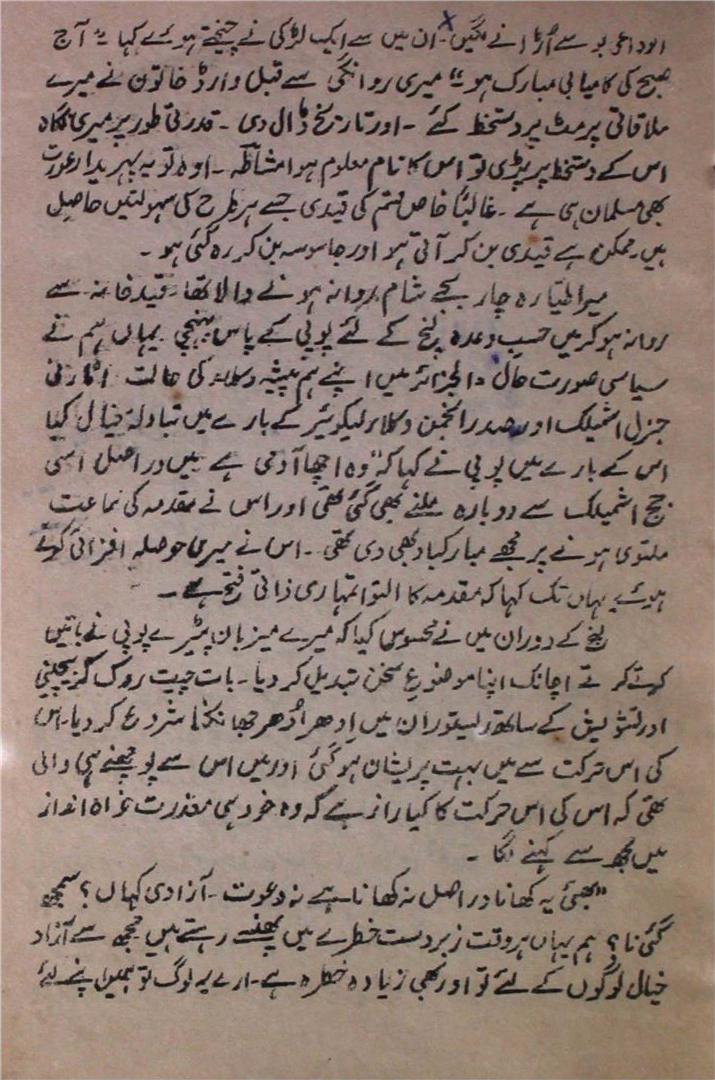 الوداعی بوسے اُڑانے لگیں۔ ان میں سے ایک لڑکی نے چیختے ہوئے کہا "آج
صبح کی کامیابی مبارک ہو" میری روانگی سے قبل وارڈ خاتون نے میرے
ملاقاتی پرمٹ پر دستخط کئے ۔ اور تاریخ ڈال دی ۔ قدرتی طور پر میری نگاہ
اس کے دستخط پر پڑی تو اس کا نام معلوم ہوا مشاطہ ۔ اوہ تو یہ پہریدار عورت
بھی مسلمان ہی ہے ۔ غالباً خاص قسم کی قیدی جسے ہر طرح کی سہولتیں حاصل
ہیں ممکن ہے قیدی بن کر آئی ہو اور جاسوسہ بن کر رہ گئی ہو ۔
میرا طیارہ چار بجے شام روانہ ہونے والا تھا ۔ قید خانہ سے
روانہ ہو کر میں حسب وعدہ لنچ کے لئے پوپی کے پاس پہنچی یہاں ہم نے
سیاسی صورت حال، الجزائر میں اپنے ہم پیشہ وکلاء کی حالت اٹارنی
جنرل اشمیلک اور صدر انجمن وکلاء لیکوئیر کے بارے میں تبادلۂ خیال کیا
اس کے بارے میں پوپی نے کہا کہ "وہ اچھا آدمی ہے میں دراصل اسی
جج اشمیلک سے دوبارہ ملنے بھی گئی تھی اور اس نے مقدمہ کی سماعت
ملتوی ہونے پر مجھے مبارکباد بھی دی تھی ۔ اس نے میری حوصلہ افزائی کرتے
ہوئے یہاں تک کہا کہ مقدمہ کا التوا تمہاری ذاتی فتح ہے ۔
لنچ کے دوران میں نے محسوس کیا کہ میرے میزبان پیٹیرے پوپی نے باتیں
کرتے کرتے اچانک اپنا موضوع سخن تبدیل کر دیا ۔ بات چیت روک کر بے چینی
اور تشویش کے ساتھ ریستوران میں اِدھر اُدھر جھانکنا شروع کر دیا۔ اس
کی اس حرکت سے میں بہت پریشان ہو گئی اور میں اس سے پوچھنے ہی والی
تھی کہ اس کی اس حرکت کا کیا راز ہے کہ وہ خود ہی معذرت خواہ انداز
میں مجھ سے کہنے لگا ۔
"بھئی یہ کھانا دراصل نہ کھانا ہے نہ دعوت ۔ آزادی کہاں ؟ سمجھ
گئی نا؟ ہم یہاں ہر وقت زبردست خطرے میں پھنسے رہتے ہیں مجھ سے آزاد
خیال لوگوں کے لئے تو اور بھی زیادہ خطرہ ہے ۔ ارے یہ لوگ تو ہمیں اپنے لئے